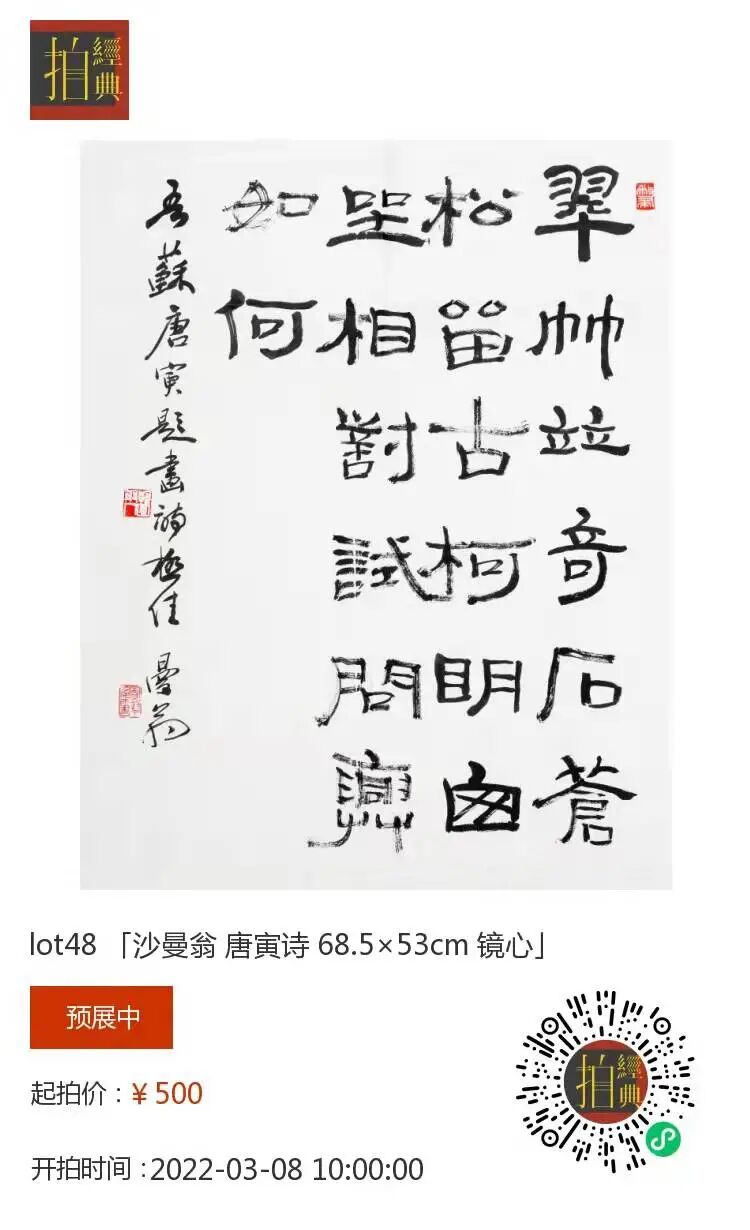 經典
拍
翠竹竝奇石蒼
松畱古柯明囱
坐相對試問興
如何
吾蘇唐寅題畫詩極佳 曼翁
lot48 「沙曼翁 唐寅诗 68.5×53cm 镜心」
预展中
起拍价：¥ 500
开拍时间：2022-03-08 10:00:00
經典
拍